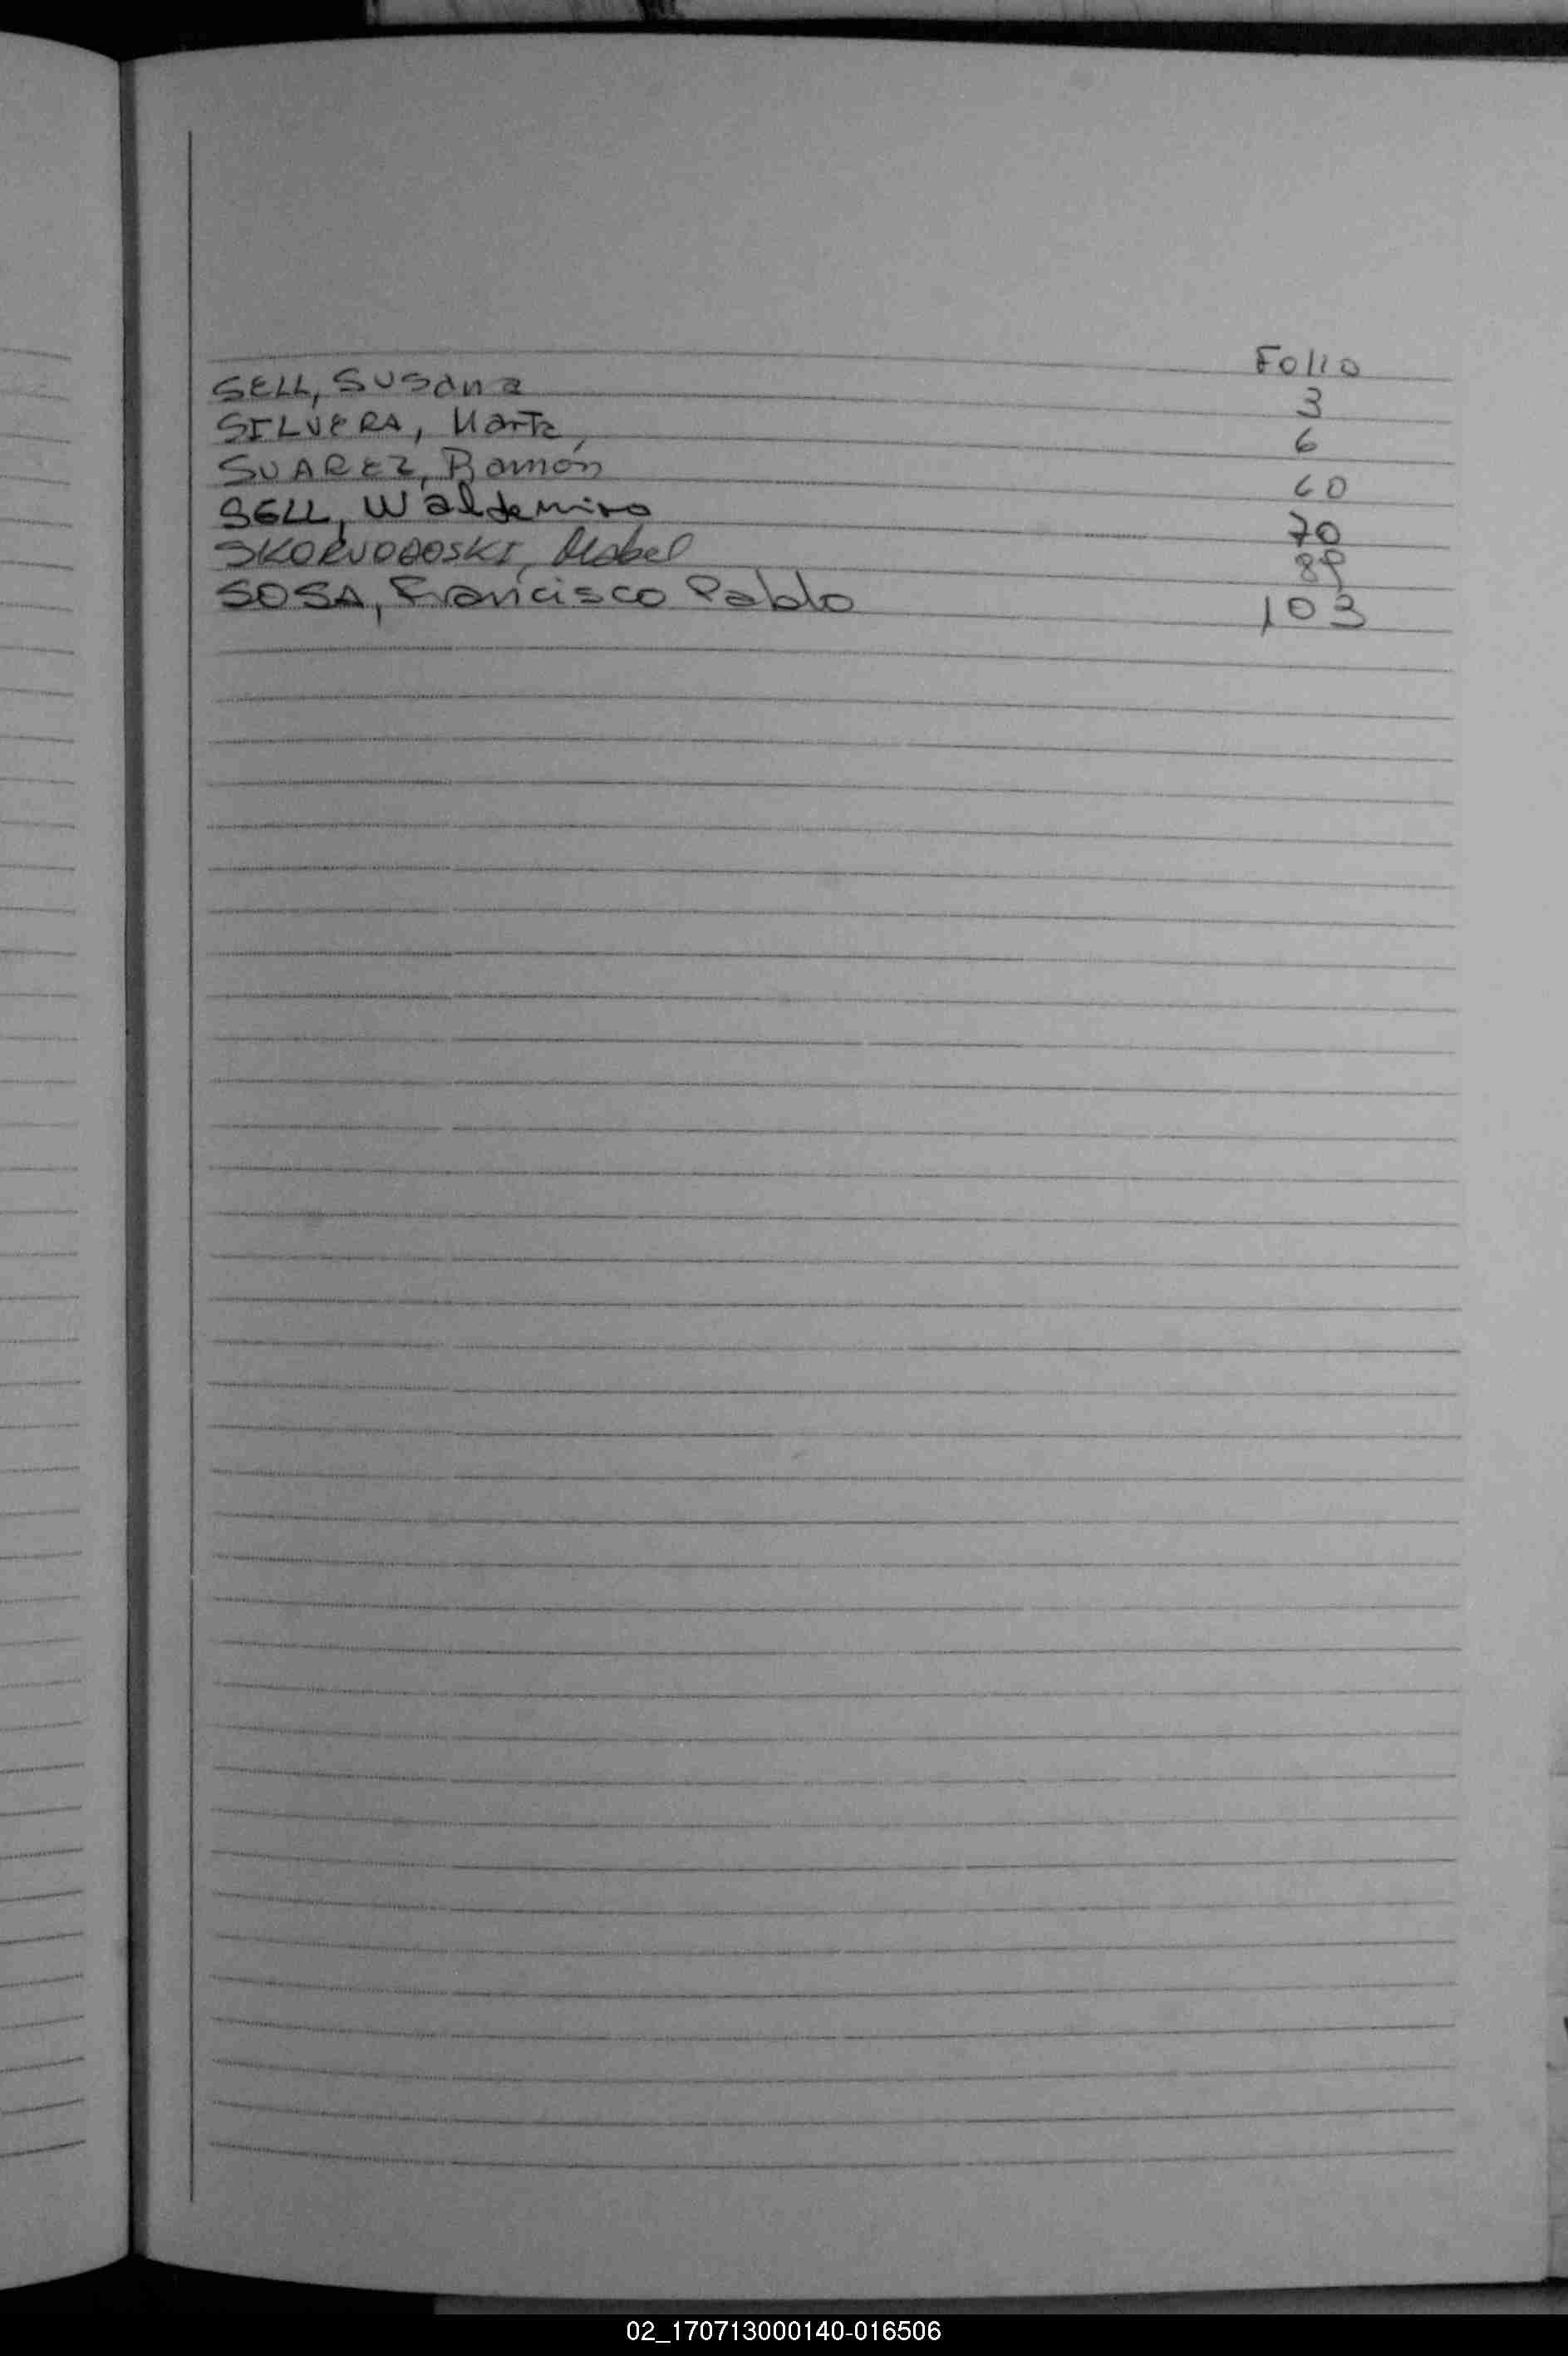 Folio
SELL, Susana 3
SILVERA, Marta, 6
SUAREZ, Ramón 60
SELL, Waldemiro 70
Mabel 89
SOSA, Francisco Pablo 103
02_170713000140-016506